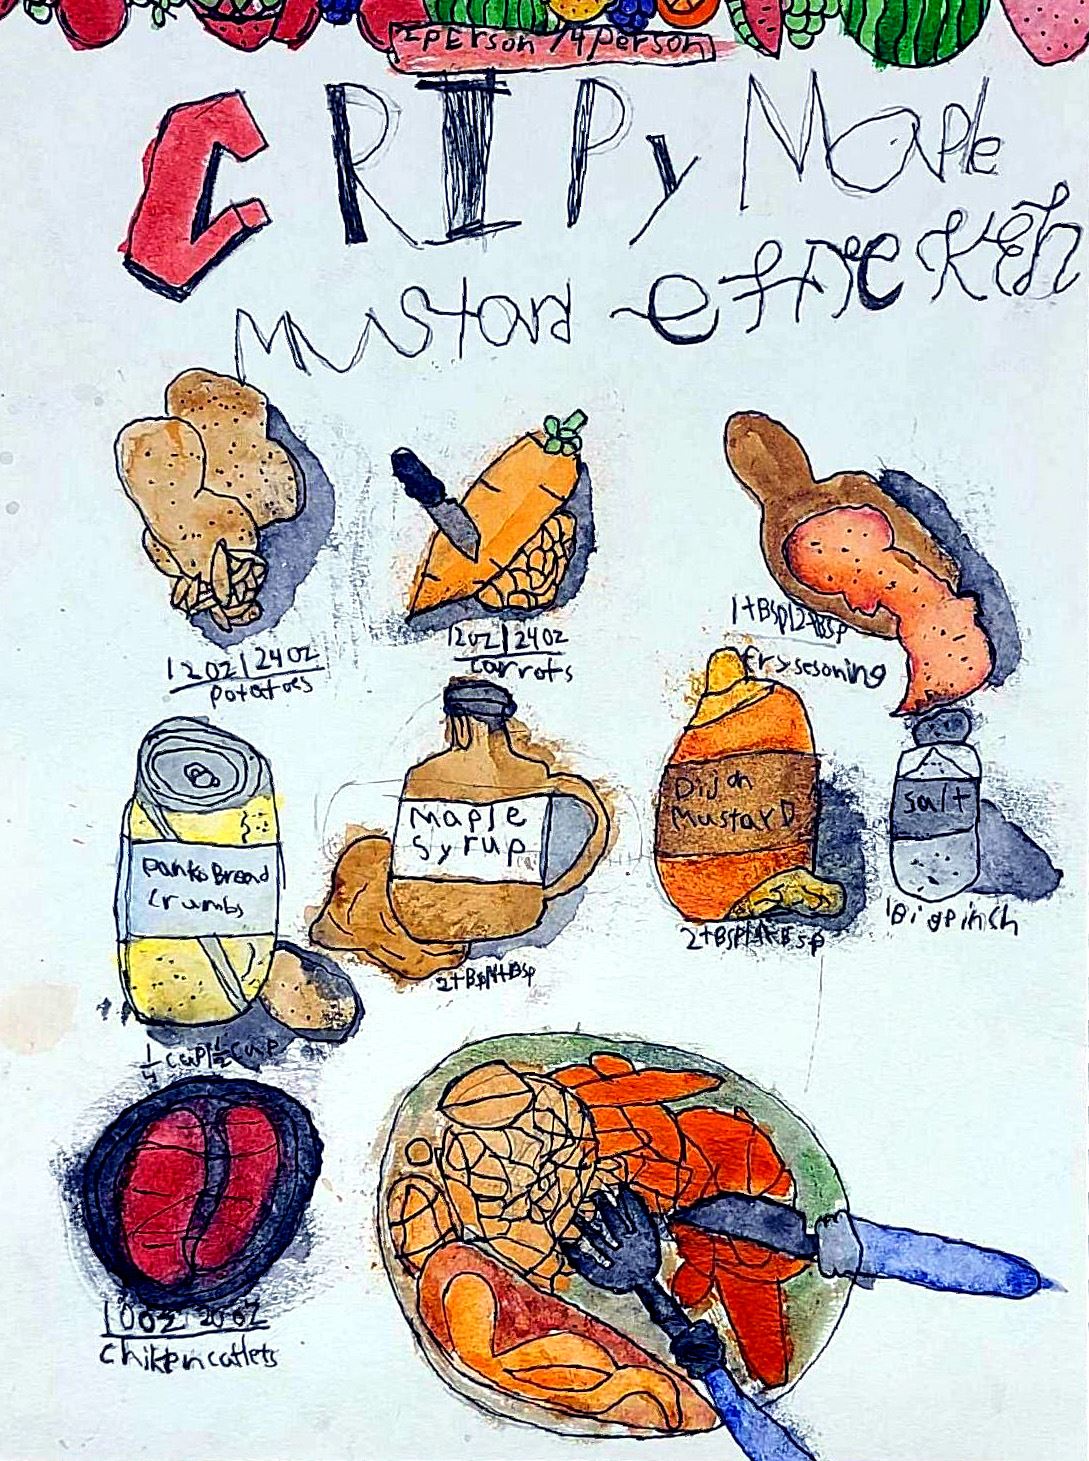 2person /4person
CRIPy Maple
Mustard
12oz | 24oz
potatoes
12oz | 24oz
carrots
1+Bsp|2+Bsp
frysesoning
Panko Bread
Crumbs
1/4 cup|1/2 cup
Maple
Syrup
2+Bsp|4+Bsp
Dijon
MustarD
2+Bsp|4+Bsp
Salt
1Bigpinsh
10oz 20oz
chikencutlets